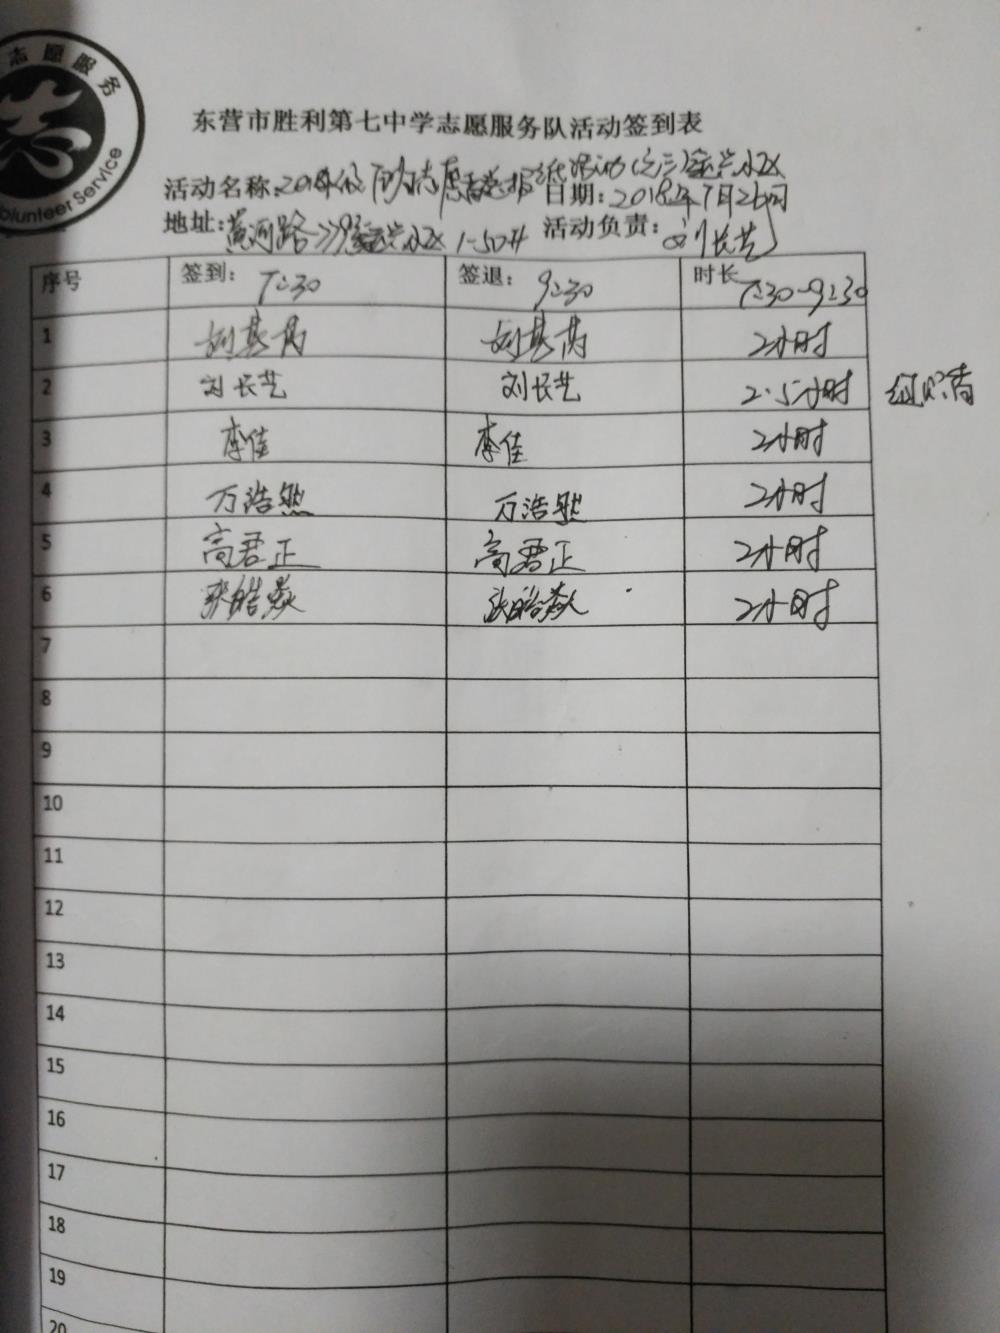 志愿服务
志
Volunteer Service
东营市胜利第七中学志愿服务队活动签到表
活动名称: 日期: 2018年7月26日
地址: 黄河路 小区 1-50# 活动负责: 刘长艺
序号 签到: 7:30 签退: 9:30 时长 7:30-9:30
1 2小时
2 刘长艺 刘长艺 2.5小时 组织者
3 李佳 李佳 2小时
4 万浩然 万浩然 2小时
5 高君正 高君正 2小时
6 张皓焱 张皓焱 2小时
7
8
9
10
11
12
13
14
15
16
17
18
19
20